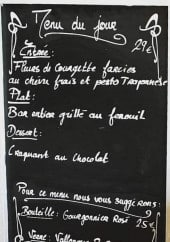 Menu du jour
29€
Entrée:
Fleurs de Courgette farcies
au chèvre frais et pesto Tropézienne
Plat:
Bar entier grillé au fenouil
Dessert:
Craquant au Chocolat
Pour ce menu nous vous suggérons:
Bouteille: Gourgonnier Rosé 25€
Verre: